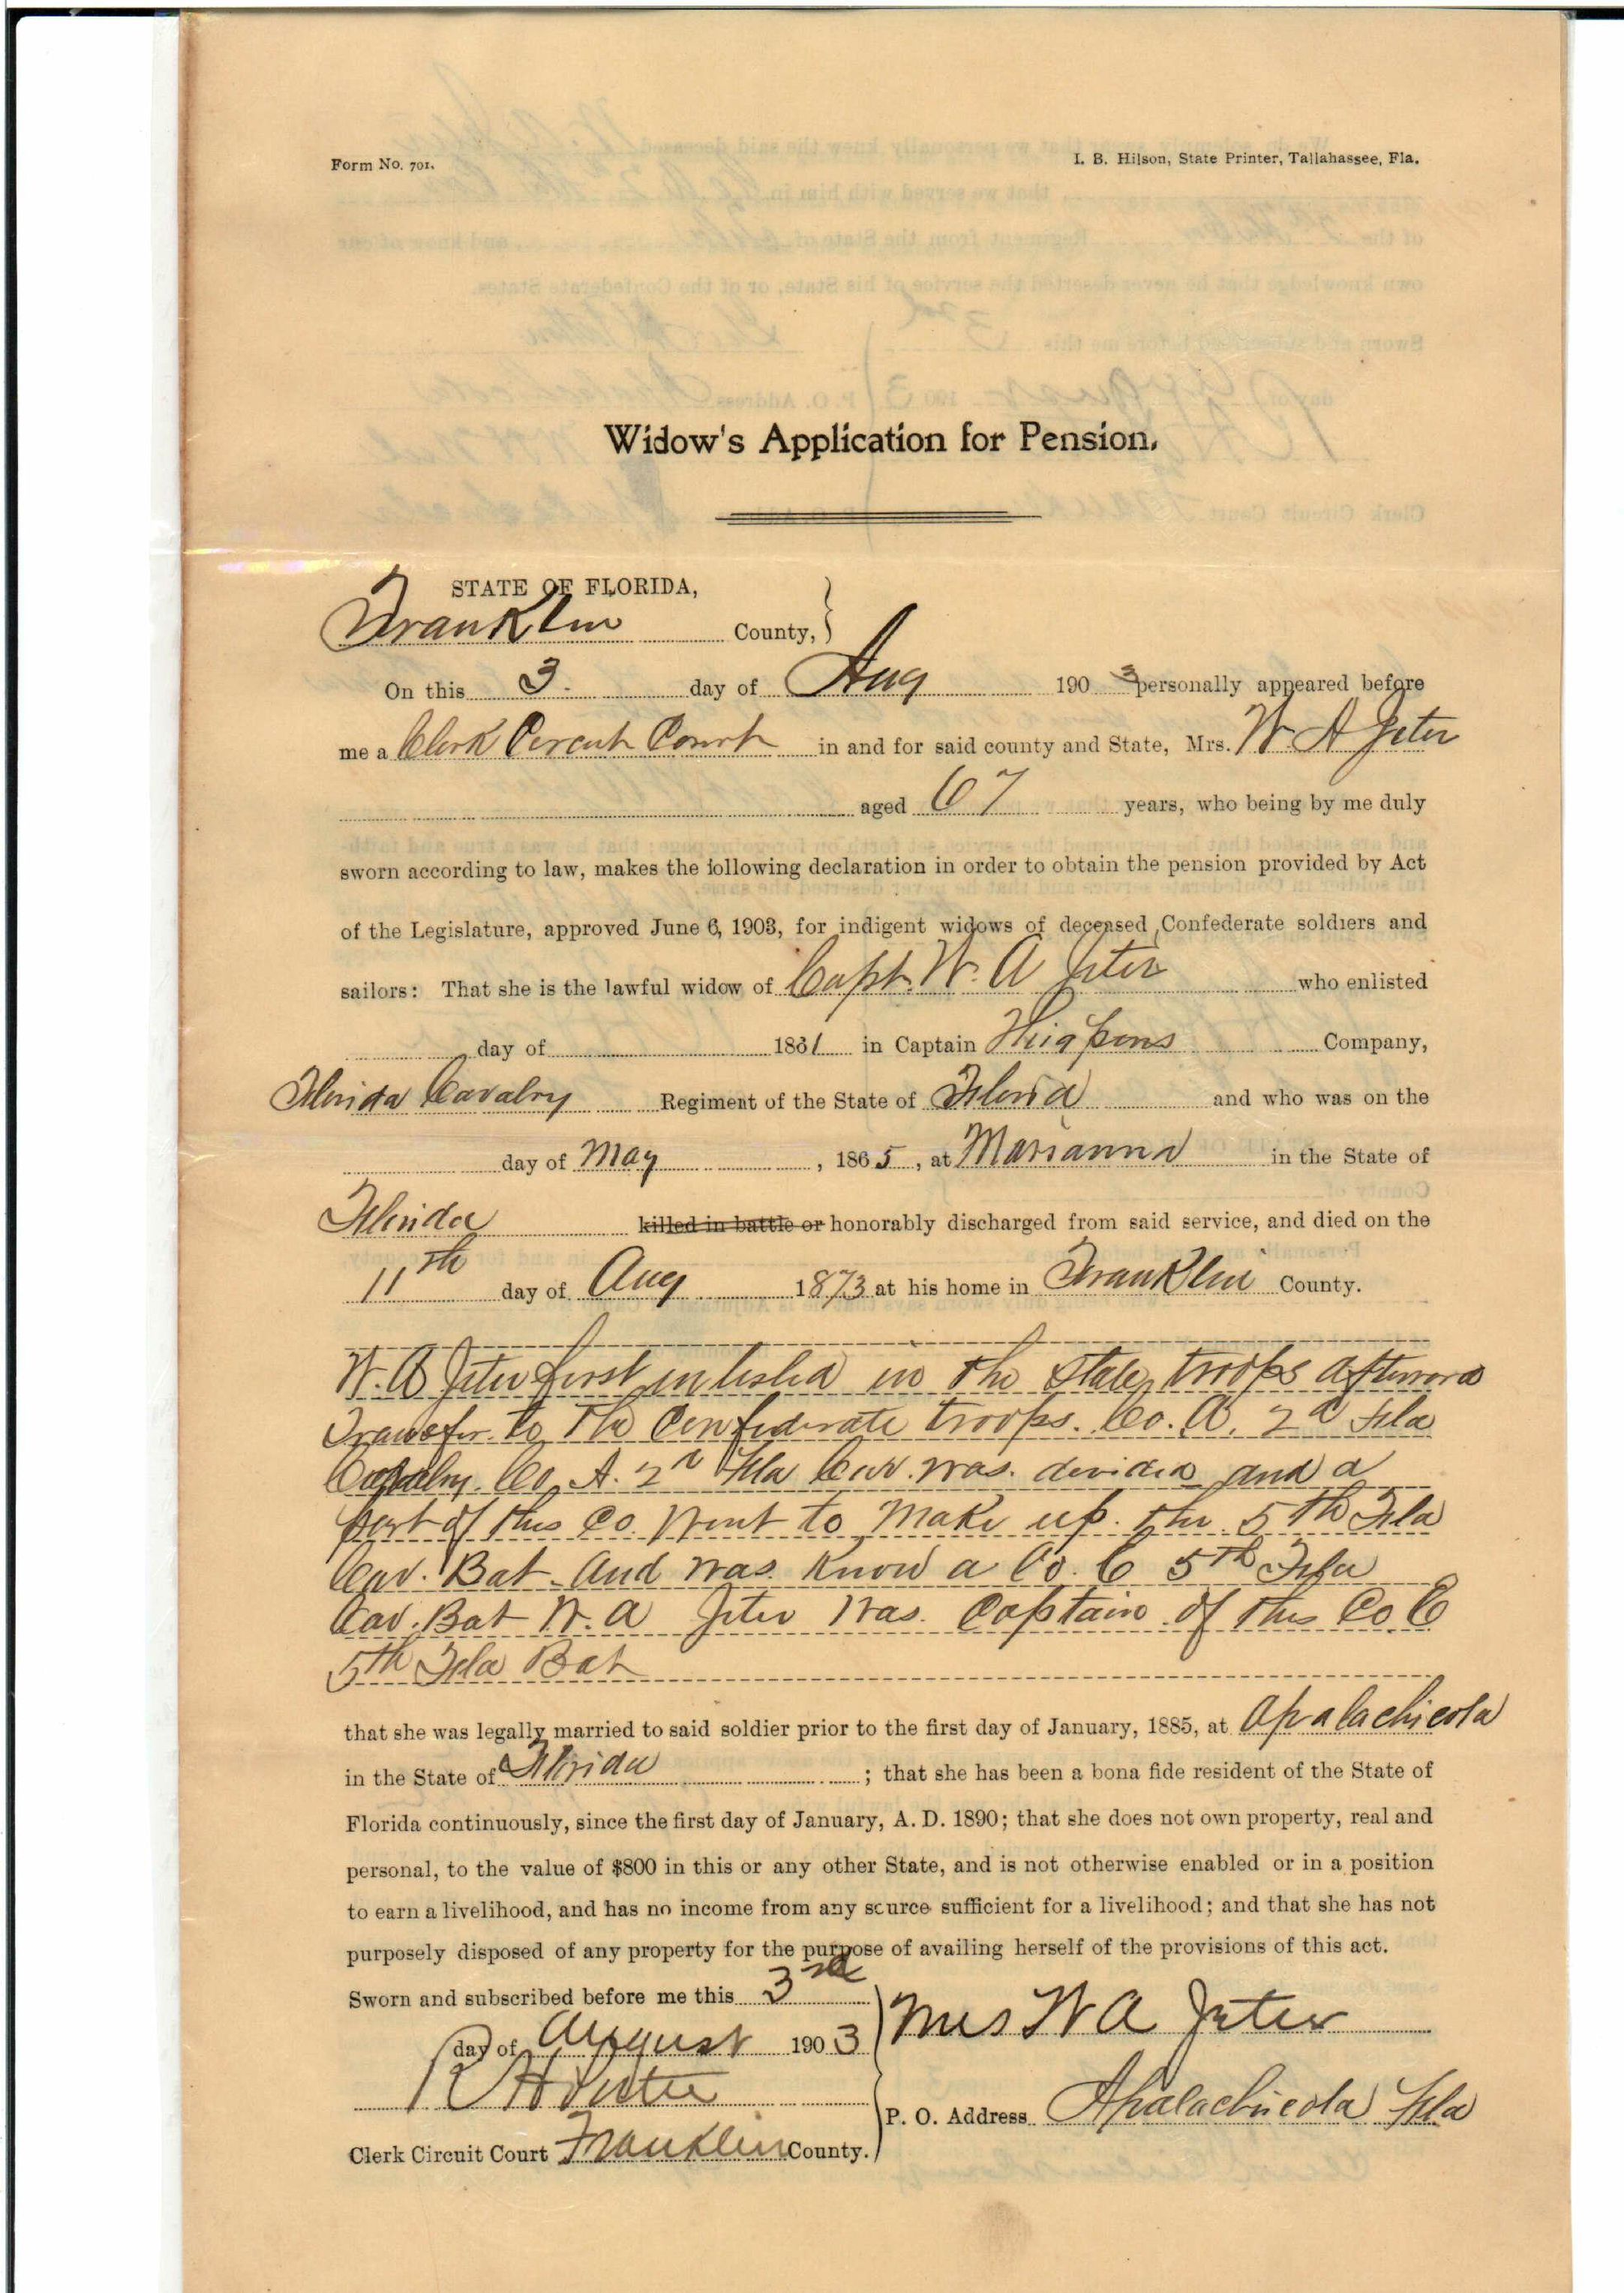 Form No. 701.
I. B. Hilson, State Printer, Tallahassee, Fla.
Widow's Application for Pension.
STATE OF FLORIDA,
Franklin County,
On this 3. day of Aug 1903 personally appeared before
me a Clerk Circuit Court in and for said county and State, Mrs. W. A Jeter
aged 67 years, who being by me duly
sworn according to law, makes the following declaration in order to obtain the pension provided by Act
of the Legislature, approved June 6, 1903, for indigent widows of deceased Confederate soldiers and
sailors: That she is the lawful widow of Capt. W. A Jeter who enlisted
day of 1861 in Captain Company,
Florida Cavalry Regiment of the State of Florida and who was on the
day of May, 1865, at Marianna in the State of
Florida killed in battle or honorably discharged from said service, and died on the
11th day of Aug 1873 at his home in Franklin County.
W. A Jeter first enlisted in the State troops afterward
Transfer to the Confederate troops. Co. A. 2d Fla
Cavalry. Co. A. 2d Fla Cav. was. devided and a
part of this Co. Went to Make up. the 5th Fla
Cav. Bat. And was. Know a Co. C 5th Fla
Cav. Bat W. A Jeter Was. Captain of this Co. C
5th Fla Bat
that she was legally married to said soldier prior to the first day of January, 1885, at Apalachicola
in the State of Florida; that she has been a bona fide resident of the State of
Florida continuously, since the first day of January, A. D. 1890; that she does not own property, real and
personal, to the value of $800 in this or any other State, and is not otherwise enabled or in a position
to earn a livelihood, and has no income from any source sufficient for a livelihood; and that she has not
purposely disposed of any property for the purpose of availing herself of the provisions of this act.
Sworn and subscribed before me this 3rd
day of August 1903
Mrs W A Jeter
R H Porter
P. O. Address Apalachicola Fla
Clerk Circuit Court Franklin County.